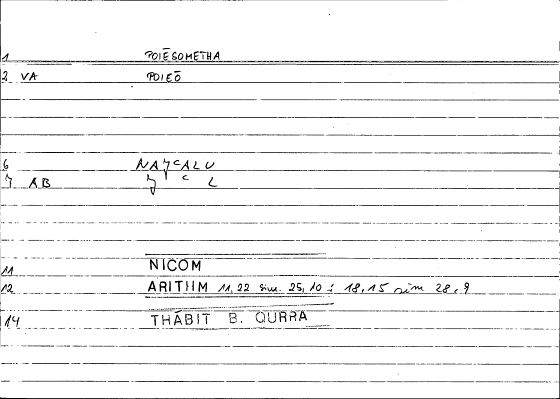 1 POIĒSOMETHA
2 VA POIEŌ
6 NAǦʿALU
7 AB Ǧ ʿ L
11 NICOM
12 ARITHM 11,22 sim. 25,10 : 18,15 sim 28,9
14 THĀBIT B. QURRA